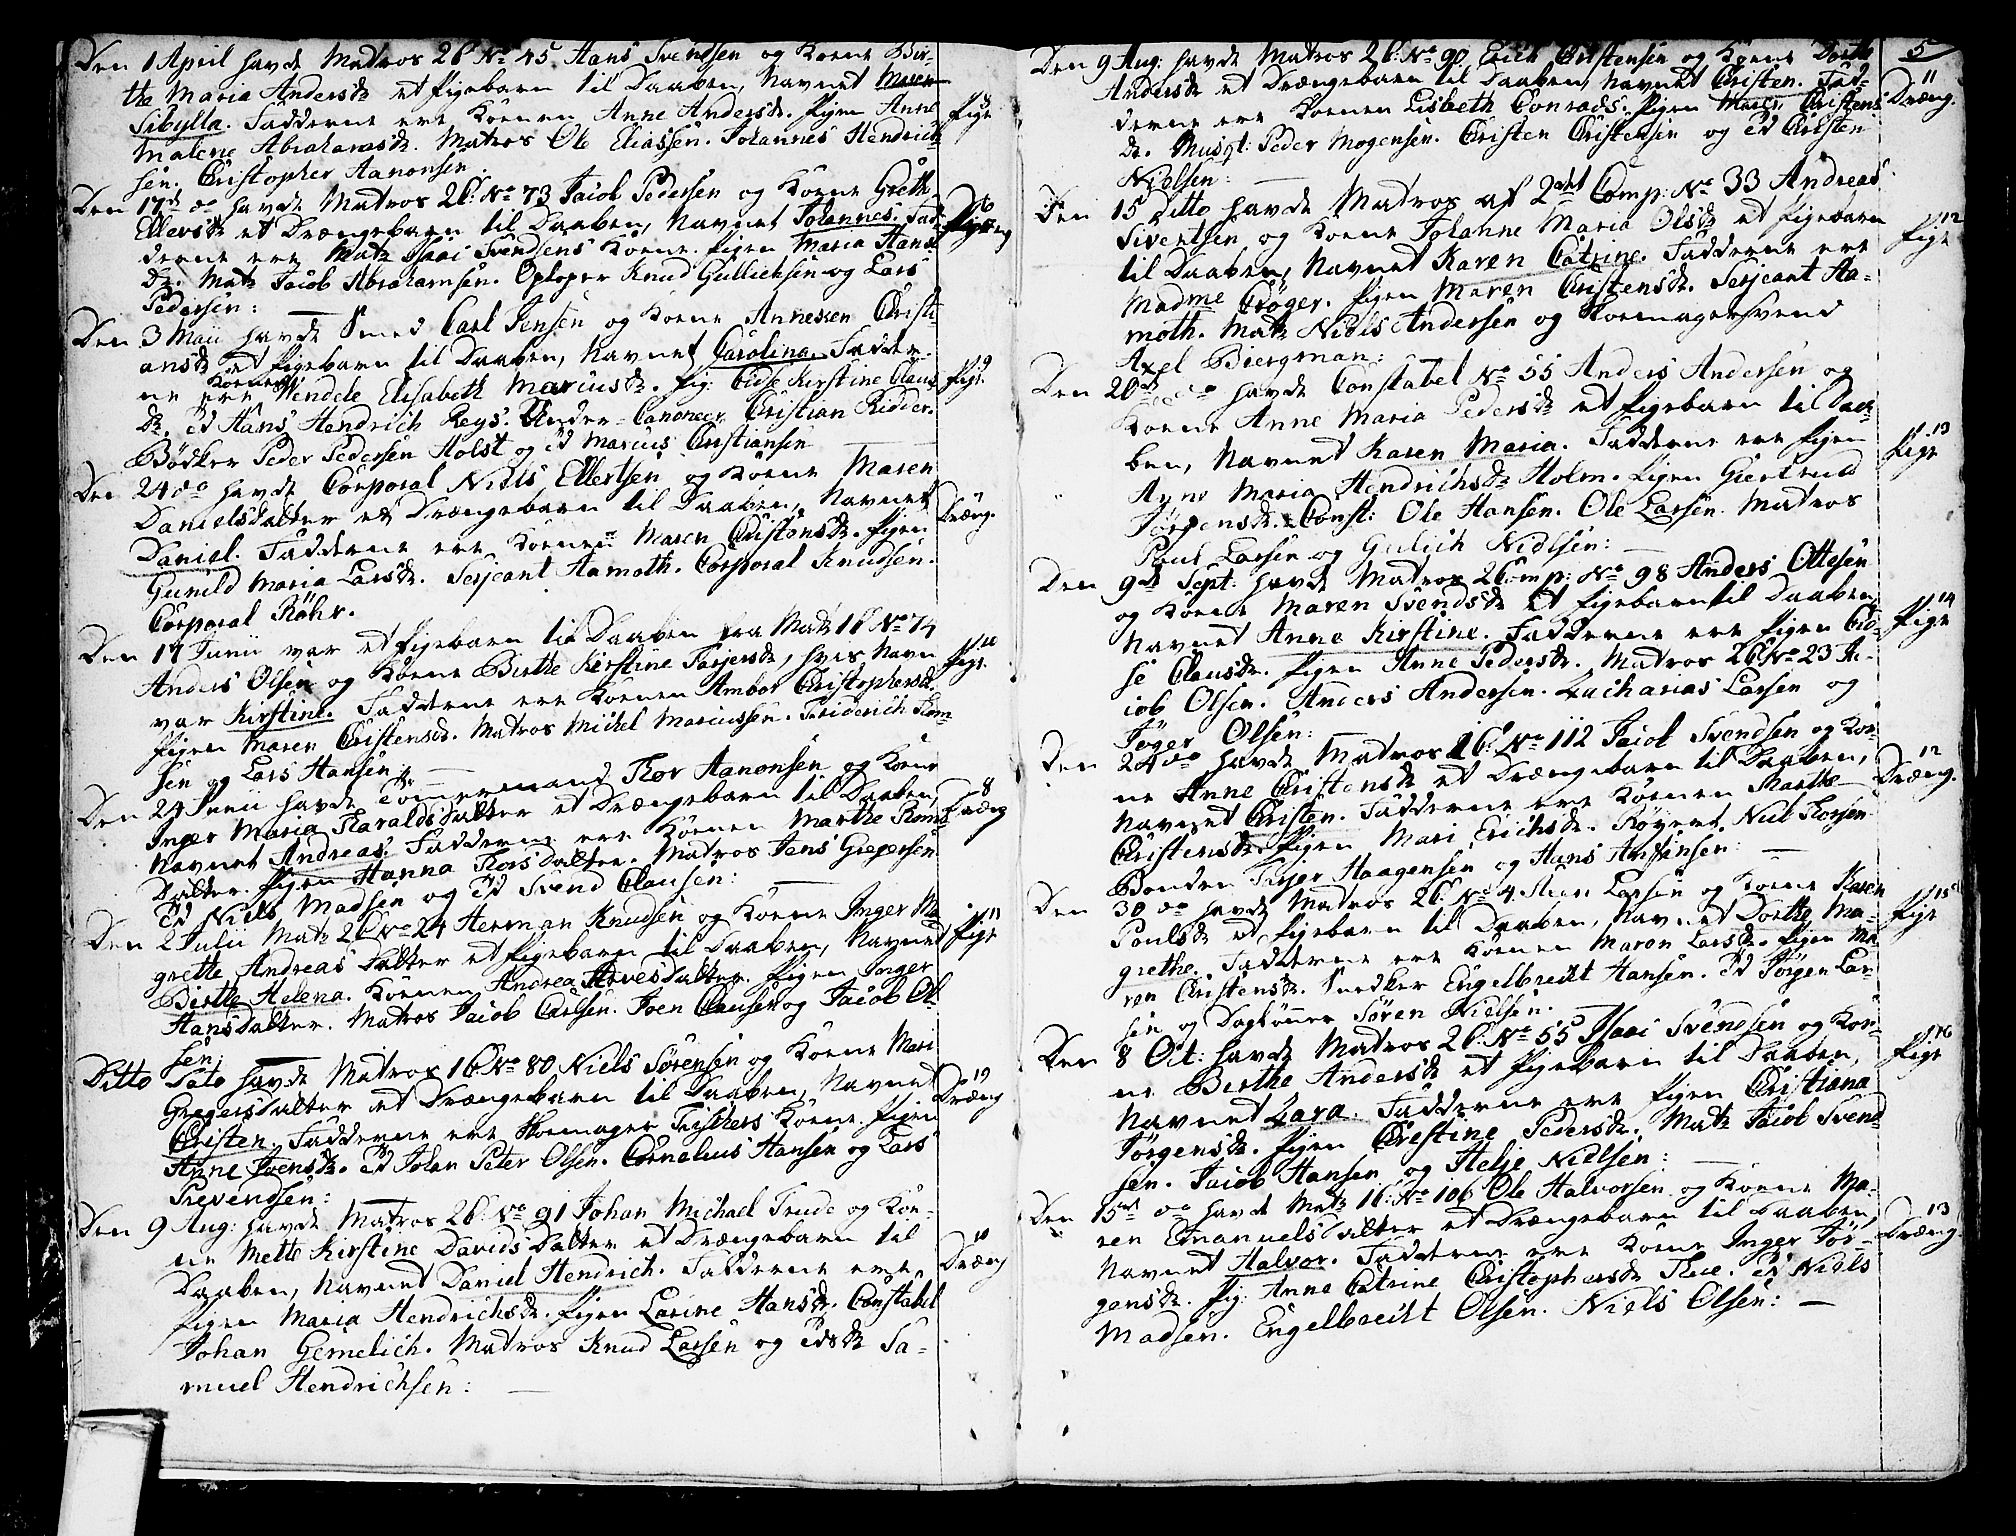 Den 1 April havde Matros 2 C No 45 Hans Svendsen og Kone Bir-
the Maria Andersdr et Pigebarn til Daaben, Navnet Maren
Sibylla. Fadderne ere Konen Anne Andersdr. Pigen Anne
Pige
Malene Abrahamsdr. Matros Ole Eliassen. Johannes Hendrich-
sen. Christopher Aanonsen
Den 17de do havde Matros 2 C: No 73 Jacob Pedersen og Kone Greth
Ellersdr et Drængebarn til Daaben, Navnet Johannes. Fad-
derne ere Matr Isaci Svendsens Kone. Pigen Maria Hans
Dr. Matr Jacob Abrahamsen. Oploper Knud Gullichsen og Lars
Pedersen:
Den 3 Maii havde Smed Carl Jensen og Kone Annessen Christi-
ansdr et Pigebarn til Daaben, Navnet Carolina. Fadder-
ne ere Konen Wendele Elisabeth Mariusdr. Pig: Cidse Kirstine Claus
9 Pige
Dr. Ed Hans Hendrich Keys. Under-Canoneer Christian Ridder.
Bödker Peder Pedersen Holst og Ed Marcus Christiansen
Den 24 do havde Corporal Niels Ellertsen og Kone Maren
Danielsdatter et Drængebarn til Daaben, Navnet
Dræng.
Daniel. Fadderne ere Konen Maren Christensdr. Pigen
Gunild Maria Larsdr. Serjeant Aamoth. Corporal Knudsen.
Corporal Röhr.
Den 14 Junii var et Pigebarn til Daaben fra Matr 1 C No 74
Anders Olsen og Kone Birthe Kirstine Tarjersdr, hvis Navn
10 Pige
var Kirstine. Fadderne ere Konen Ambor Christophersdr.
Pigen Maren Christensdr. Matros Michel Mariussen. Friderich Thom-
sen og Lars Hansen:
Den 24 Junii havde Tömmermand Thor Aanonsen og Kone
Inger Maria Haraldsdatter et Drængebarn til Daaben,
8 Dræng
Navnet Andreas. Fadderne ere Konen Marthe Thoms
Datter. Pigen Hanna Thorsdatter. Matros Jens Gregersen
Ed Niels Madsen og Ed Svend Clausen:
Den 2 Julii Matr 2 C No 24 Herman Knudsen og Kone Inger Ma-
grethe Andreasdatter et Pigebarn til Daaben, Navnet
11 Pige
Birthe Helena. Konen Andrea Arvesdatter. Pigen Inger
Hansdatter. Matros Jacob Carlsen. Joen Clausen og Jacob Ol-
sen
Ditto Dato havde Matros 1 C: No 80 Niels Sörensen og Kone Mari
Gregersdatter et Drængebarn til Daaben, Navnet
Dræng
Christen. Fadderne ere Skoemager Fischers Kone. Pigen
Anne Joensdr. Ed Johan Peter Olsen. Cornelius Hansen og Lars
Trevendsen:
Den 9 Aug: havde Matros 2 C: No 91 Johan Michael Trude og Kon-
ne Mette Kirstine Davidsdatter et Drængebarn til
10 Dræng
Daaben, Navnet Daniel Hendrich. Fadderne ere
Pigen Maria Hendrichsdr. Pigen Larine Hansdr. Constabel
Johan Gemelich. Matros Knud Larsen og Ed Sa-
muel Hendrichsen:
5
Den 9 Aug: havde Matros 2 C: No 90 Erich Christensen og Kone Dorthe
Andersdr et Drængebarn til Daaben, Navnet Christen. Fad-
11 Dræng.
derne ere Konen Lisbeth Conrads. Pigen Maren Christens
Dr. Musqt: Peder Mogensen. Christen Christensen og Ed Christen
Nielsen:
Den 15 Ditto havde Matros af 2det Comp: No 33 Andreas
Sivertsen og Kone Johanne Maria Olsdr et Pigebarn
12 Pige
til Daaben, Navnet Karen Catrine. Fadderne ere
Madme Cröger. Pigen Maren Christensdr. Serjeant Aa-
moth. Matr Niels Andersen og Skoemagersvend
Axel Biergman:
Den 20de do havde Constabel No 55 Anders Andersen og
Kone Anne Maria Pedersdr et Pigebarn til Daa-
13 Pige
ben, Navnet Karen Maria. Fadderne ere Pigen
Anne Maria Hendrichsdr Holm. Pigen Giertrud
Jörgensdr. Const: Ole Hansen. Ole Larsen. Matros
Poul Larsen og Gulich Nielsen:
Den 9de Sept: havde Matros 2 Comp: No 98 Anders Ottesen
og Kone Maren Svendsdr et Pigebarn til Daaben,
14 Pige
Navnet Anne Kirstine. Fadderne ere Pigen Cid-
se Clausdr. Pigen Anne Pedersdr. Matros 2 C: No 23 Ja-
cob Olsen. Anders Andersen. Zacharias Larsen og
Jöger Olsen:
Den 24 do havde Matros 1 C: No 112 Jacob Svendsen og Kon-
ne Anne Christensdr et Drængebarn til Daaben,
12 Dræng.
Navnet Christen. Fadderne ere Konen Marthe
Christensdr. Pigen Mari Erichsdr. Röyert Niel Thorsen
Bonden Tarjer Haagensen og Hans Hansen:
Den 30 do havde Matros 2 C: No 4 Steen Larsen og Kone Karen
Poulsdr et Pigebarn til Daaben, Navnet Dorthe Ma-
15 Pige
grethe. Fadderne ere Konen Maren Larsdr. Pigen Ma-
ren Christensdr. Snedker Engelbrecht Hansen. Ed Jörgen Lar-
sen og Daglönner Sören Nielsen.
Den 8 Oct: havde Matros 2 C: No 55 Isaci Svendsen og Kon-
ne Berthe Andersdr et Pigebarn til Daaben,
16 Pige
Navnet Zara. Fadderne ere Pigen Christiana
Jörgensdr. Pigen Chrestine Pedersdr. Matr Jacob Svend-
sen. Jacob Hansen og Helje Nielsen:
Den 15de do havde Matr 1 C: No 106 Ole Halvorsen og Kone Ma-
ren Emanuelsdatter et Drængebarn til Daaben,
13 Dræng.
Navnet Halvor. Fadderne ere Kone Inger Jör-
gensdr. Pig: Anne Catrine Christophersdr Thue. Ed Niels
Madsen. Engelbrecht Olsen. Niels Olsen: